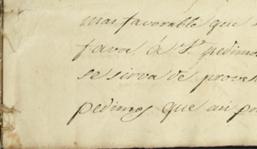 mas favorable que
favor á V. pedimos
se sirva de proveh
pedimos que an p